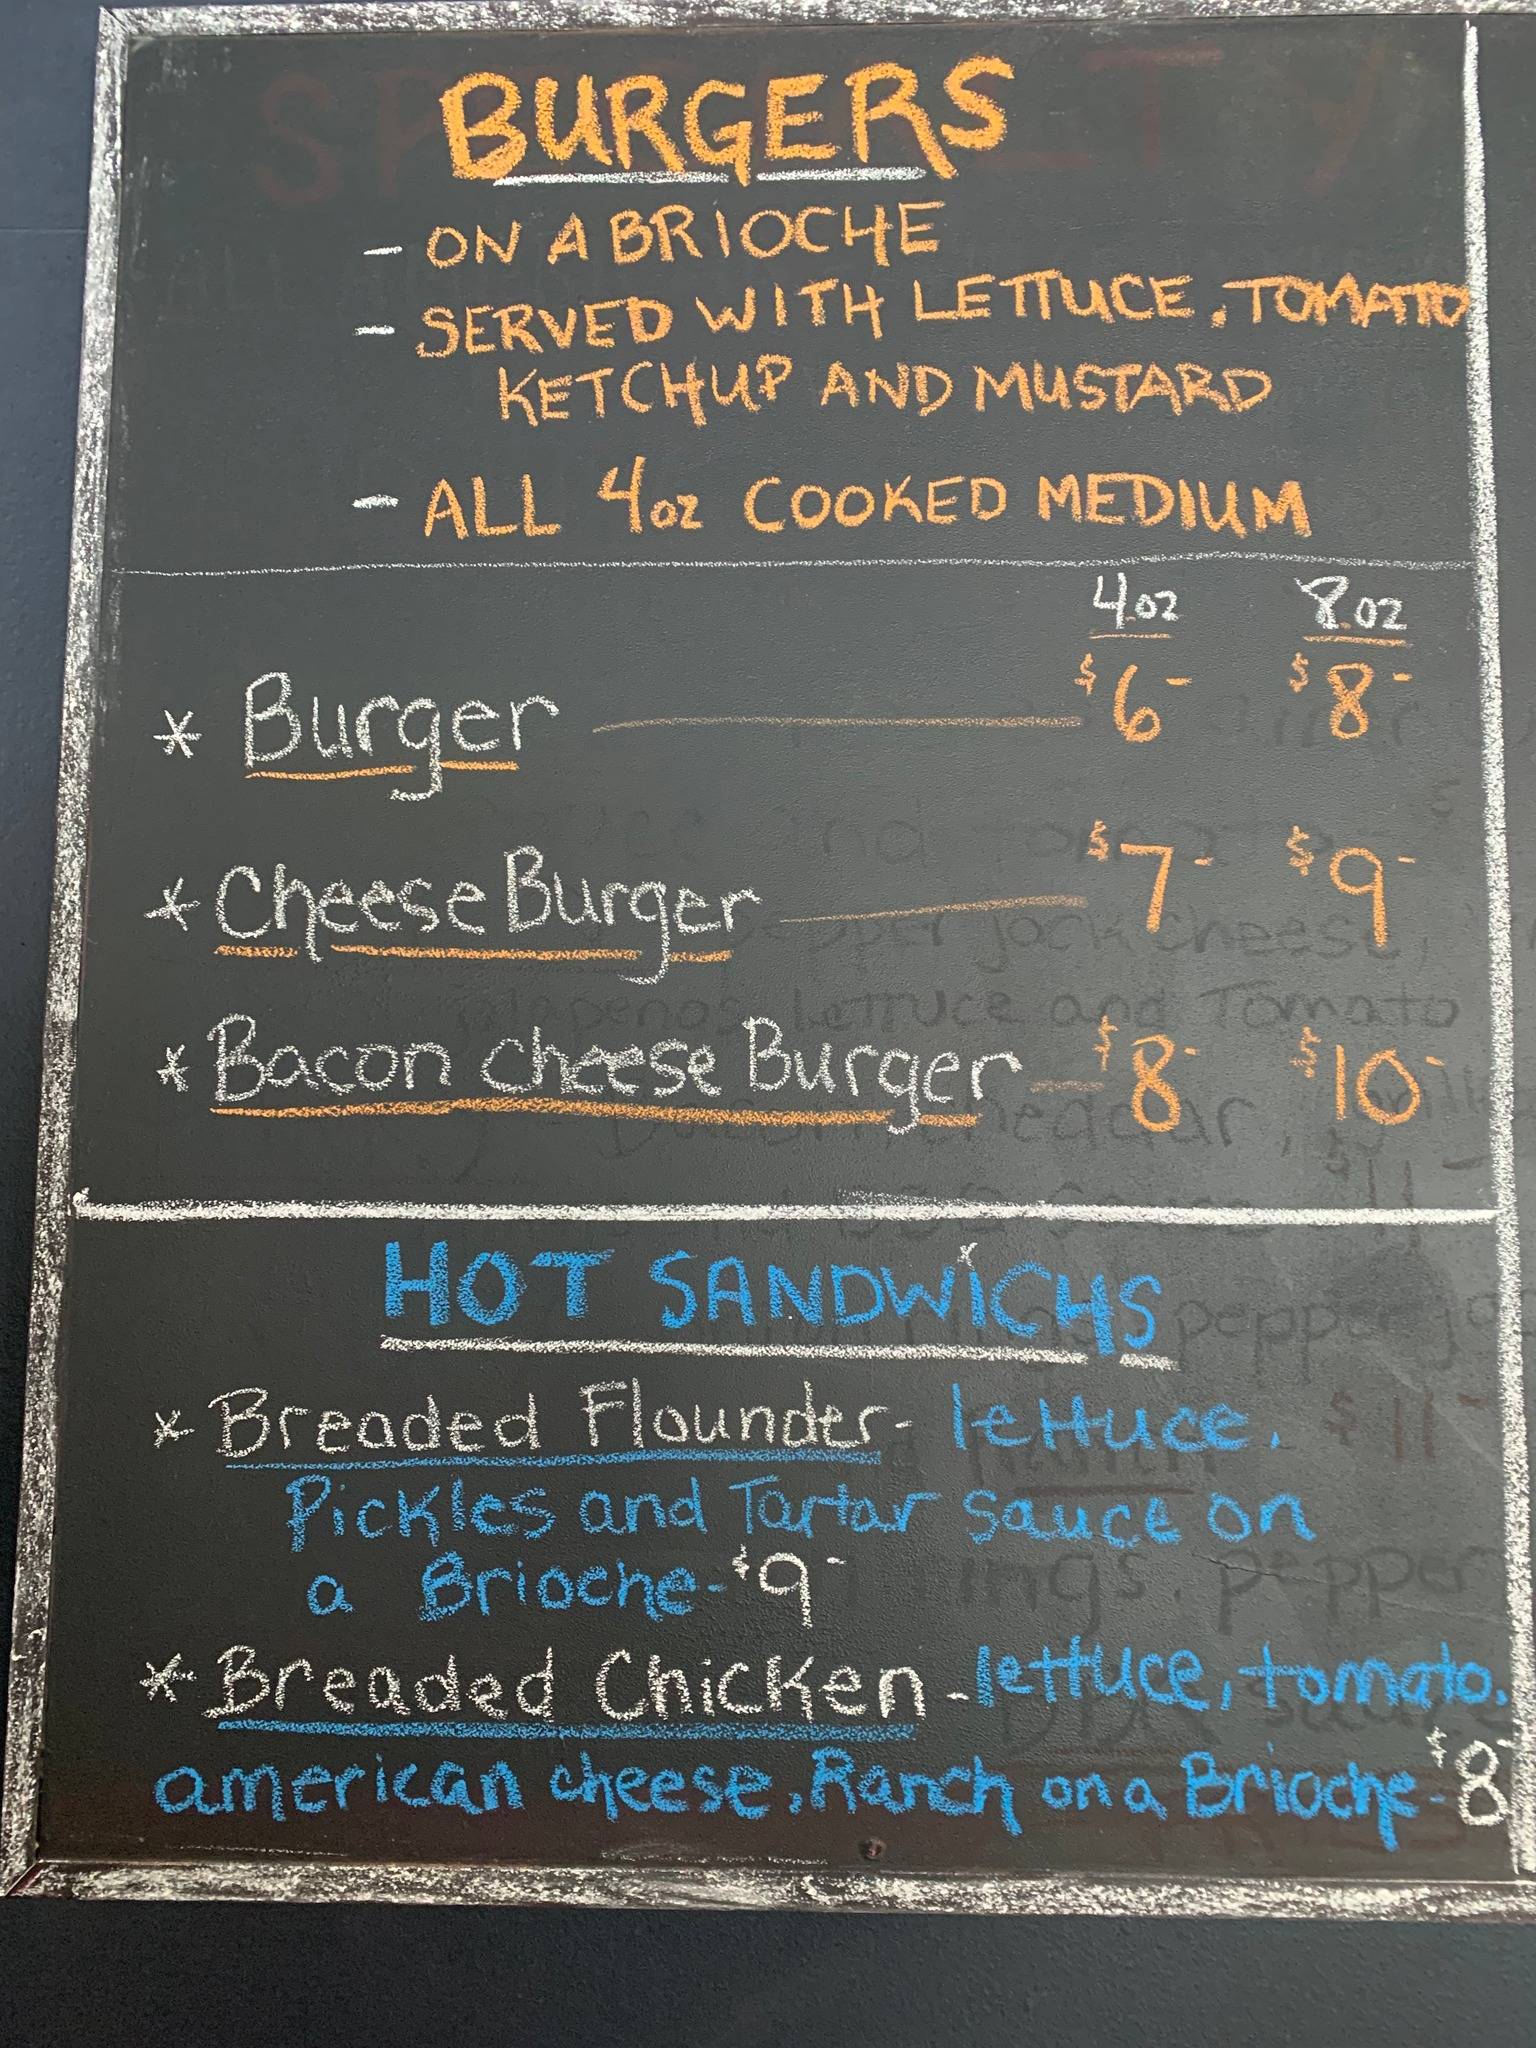 BURGERS
- ON A BRIOCHE
- SERVED WITH LETTUCE, TOMATO
KETCHUP AND MUSTARD
- ALL 4oz COOKED MEDIUM
4.oz 8.oz
* Burger $6- $8-
* Cheese Burger $7- $9-
* Bacon cheese Burger $8- $10-
HOT SANDWICHS
* Breaded Flounder- lettuce,
Pickles and Tartar Sauce on
a Brioche-$9-
* Breaded Chicken - lettuce, tomato,
american cheese, Ranch on a Brioche-$8-